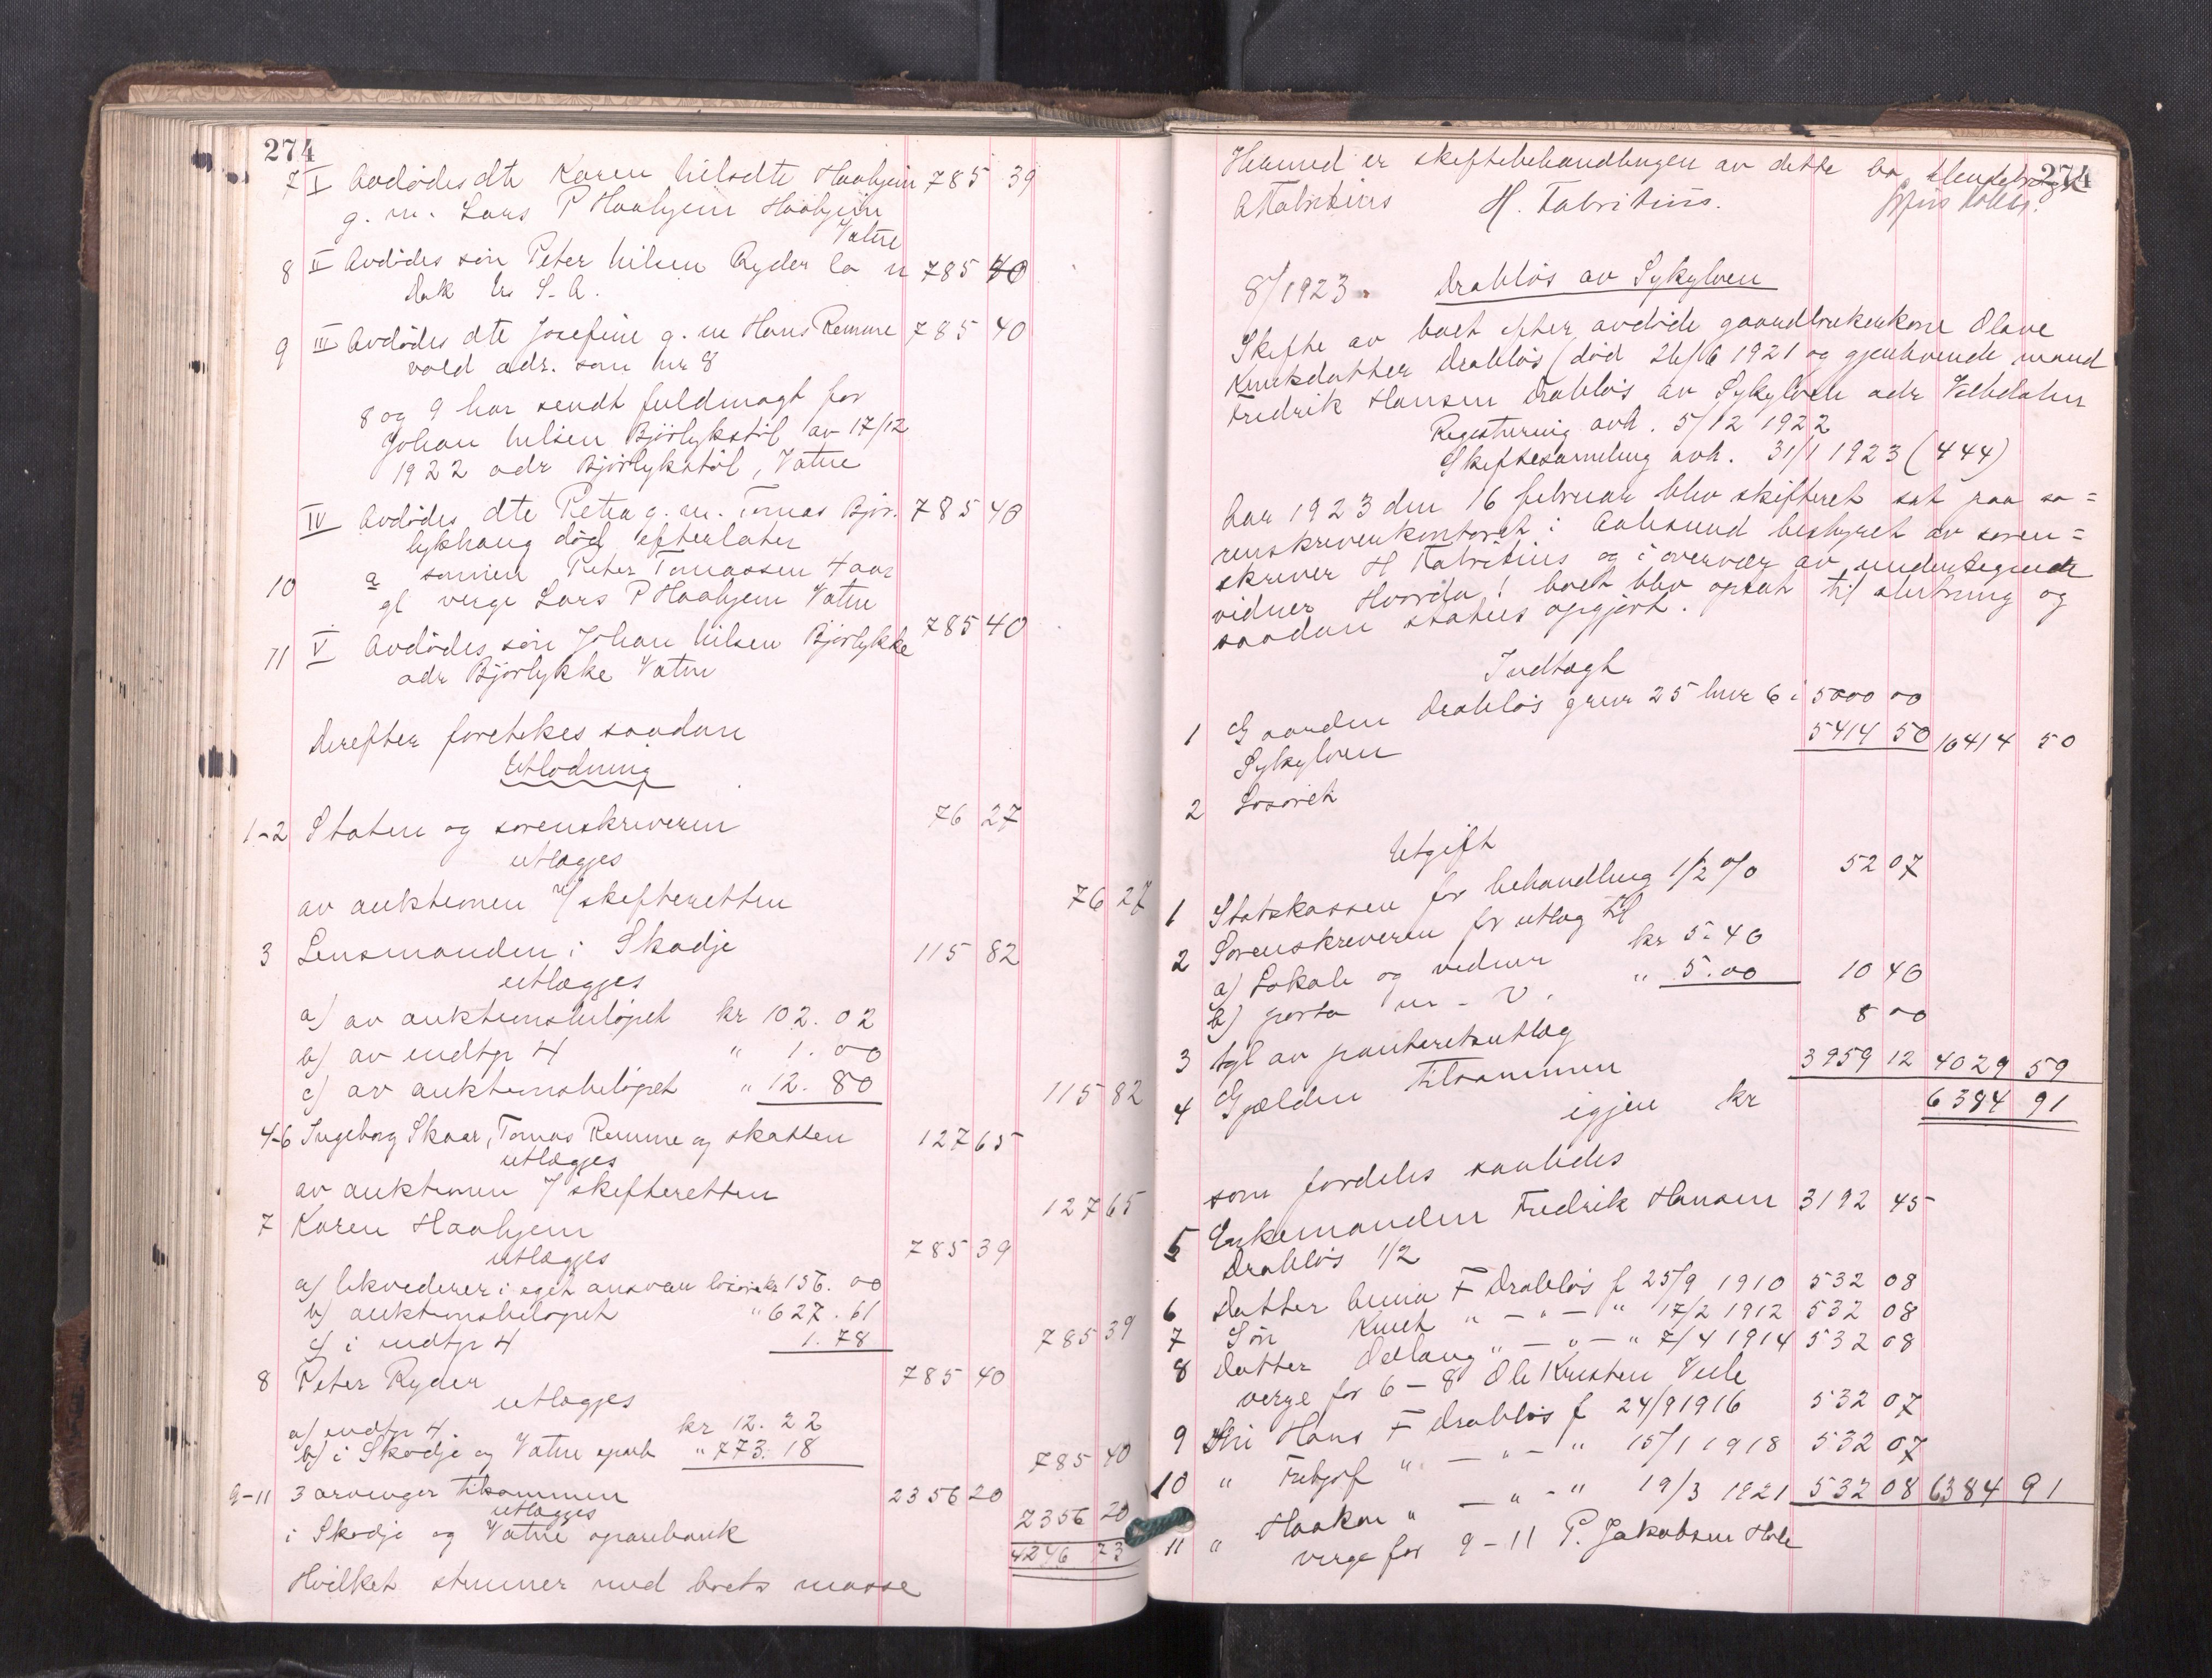 274
7 I Avdødes dte Karen Nilsdte Haahjem 785 39
g. m. Lars P Haahjem Haahjem
Vatne
8 II Avdødes søn Peter Nilsen Ryder 785 40
Dak U. S. A.
9 III Avdødes dte Josefine g. m Hans Remme 785 40
vold adr. som nr 8
8 og 9 har sendt fuldmagt for
Johan Nilsen Bjørlykstøl av 17/12
1922 adr Bjørlykstøl, Vatne
IV Avdødes dte Petra g. m. Tomas Bjør- 785 40
lykhaug død efterlater
10 a sønnen Peter Tomassen 4 aar
gl verge Lars P Haahjem Vatne
11 V Avdødes søn Johan Nilsen Bjørlykke 785 40
adr Bjørlykke Vatne
Derefter foretokes saadan
Utlodning
1-2 Staten og sorenskriveren 76 27
utlægges
av auktionen v/ skifteretten 76 27
3 Lensmanden i Skodje 115 82
utlægges
a) av auktionsbeløpet kr 102.02
b) av indtp 4 " 1.00
c) av auktionsbeløpet " 12.80 115 82
4-6 Ingeborg Skaar, Tomas Remme og skatten 127 65
utlægges
av auktionen v/ skifteretten 127 65
7 Karen Haahjem
utlægges 785 39
a) likvederer i eget ansvar løsøre kr 156.00
b) auktionsbeløpet " 627.61
c) i indtp 4 1.78 785 39
8 Peter Ryder 785 40
utlægges
a) indtp 4 kr 12.22
b) i Skodje og Vatne spareb " 773.18 785 40
9-11 3 arvinger tilsammen 2356 20
utlægges
i Skodje og Vatne sparebank 2356 20
4246 73
Hvilket stemmer med boets masse
274
Hermed er skiftebehandlingen av dette bo
A Fabritius H. Fabritius.
8/1923. Drabløs av Sykylven
Skifte av boet efter avdøde gaardbrukerkone Olave
Knutsdatter Drabløs (død 26/6 1921 og gjenlevende mand
Fredrik Hansen Drabløs av Sykylven adr Velledalen
Registrering avh. 5/12 1922
Skiftesamling avh. 31/1 1923 (444)
Aar 1923 den 16 februar blev skifteret sat paa so=
renskriverkontoret i Aalesund bestyret av soren=
skriver H Fabritius og i overvær av undertegnede
vidner Hvorda! boet blev optat til slutning og
saadan status opgjort.
Indtægt
1 Gaarden Drabløs grnr 25 bnr 6 i 5000 00
Sykylven 5414 50 10414 50
2 Løsøret
Utgift
1 Statskassen for behandling 1/2 % 52 07
2 Sorenskriveren for utlæg til
a) Lokale og vidner kr 5.40
b) porto m - v. " 5.00 10 40
3 tgl av panteretsutlæg 8 00
4 Gjælden tilsammen 3959 12 4029 59
igjen kr 6384 91
som fordeles saaledes
5 Enkemanden Fredrik Hansen 3192 45
Drabløs 1/2
6 Datter Anna F Drabløs f 25/9 1910 532 08
7 Søn Knut " - " - " 17/2 1912 532 08
8 Datter Oddlaug " - " - " 7/4 1914 532 08
verge for 6 - 8 Ole Kristen Velle
9 Søn Hans F Drabløs f 24/9 1916 532 07
10 " Fritjof " - " - " 15/1 1918 532 07
11 " Haakon " - " - " 19/3 1921 532 08 6384 91
verge for 9 - 11 P. Jakobsen Hole